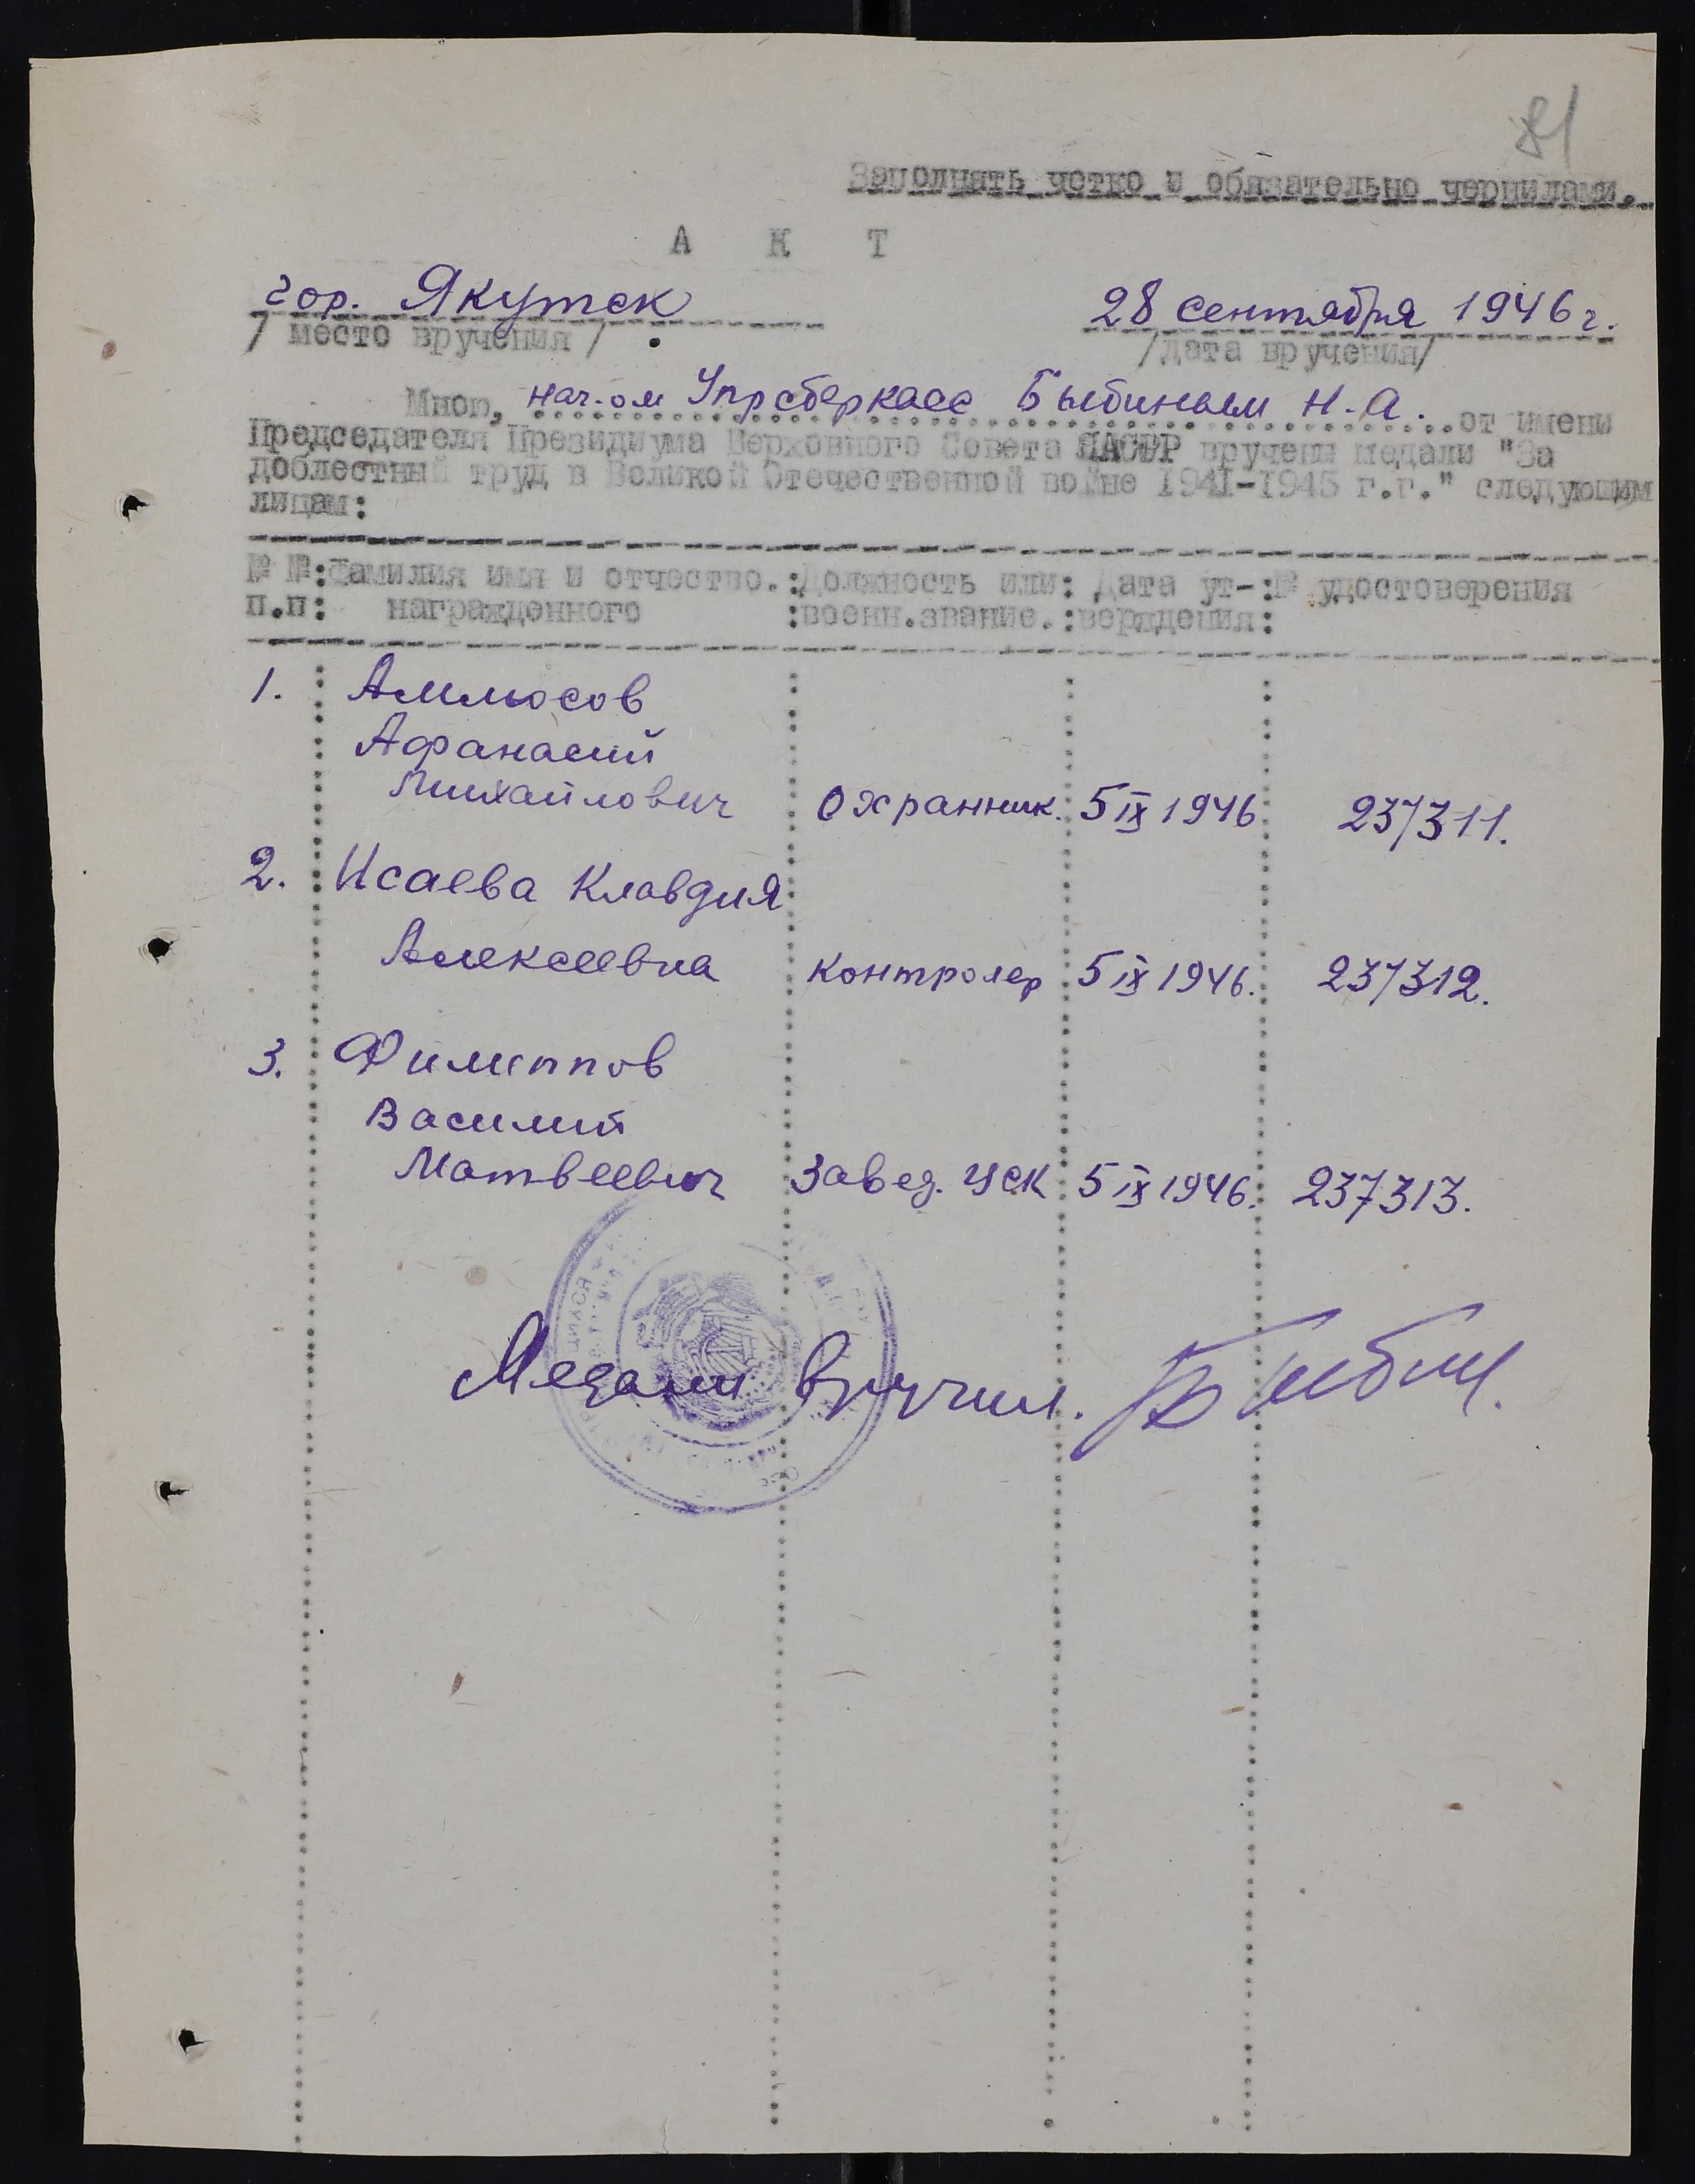 81
Заполнять четко и обязательно чернилами.
А К Т
гор. Якутск
28 сентября 1946 г.
/ место вручения /
/дата вручения/
Мною, нач-ом Упрсберкасс Быбиным Н.А. от имени
Председателя Президиума Верховного Совета ЯАССР вручены медали "За
доблестный труд в Великой Отечественной войне 1941-1945 г.г." следующим
лицам:
№ №:Фамилия имя и отчество.:Должность или: Дата ут-:№ удостоверения
п.п: награжденного :военн.звание.:верждения:
1. Аммосов
Афанасий
Михайлович Охранник. 5 IX 1946 237311.
2. Исаева Клавдия
Алексеевна контролер 5 IX 1946. 237312.
3. Филиппов
Василий
Матвеевич Завед. ЦСК 5 IX 1946. 237313.
Медали вручил. Быбин.